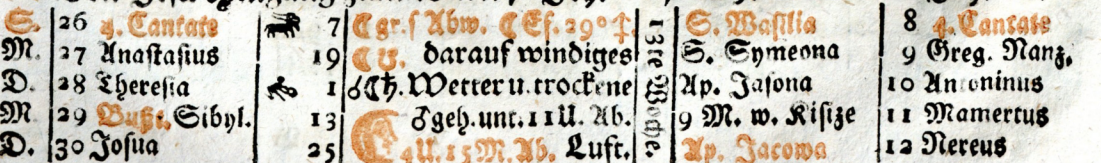 S. 26 4. Cantate 7 ☾ gr. s Abw. ☾ Ef. 29° ♐. S. Wasilia 8 4. Cantate
M. 27 Anastasius 19 ☾ U. darauf windiges S. Symeona 9 Greg. Nanz.
D. 28 Theresia 1 ☌☾♄. Wetter u. trockene Ap. Jasona 10 Antoninus
M. 29 Bußt. Sibyl. 13 ♂ geh. unt. 11 U. Ab. 9 M. w. Kisize 11 Mamertus
D. 30 Josua 25 4 U. 15 M. Ab. Luft. Ap. Jacowa 12 Nereus
13te Woche.